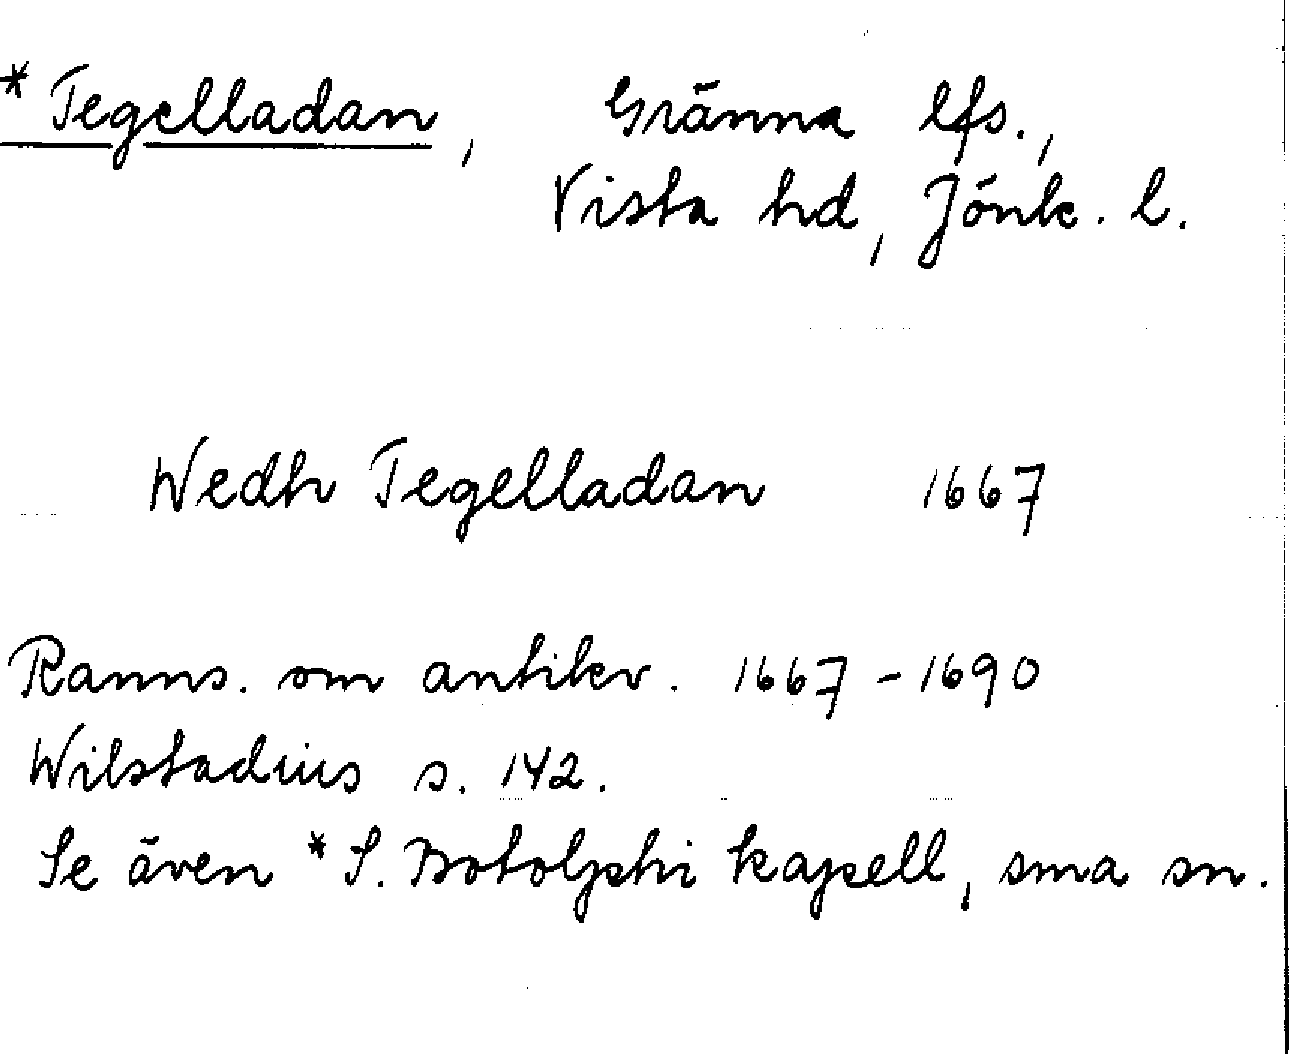 * Tegelladan, Gränna lfs.,
Vista hd, Jönk. l.
Wedh Tegelladan 1667
Ranns. om antikv. 1667-1690
Wilstadius s. 142.
Se även * S. Botolphi kapell, sma sn.